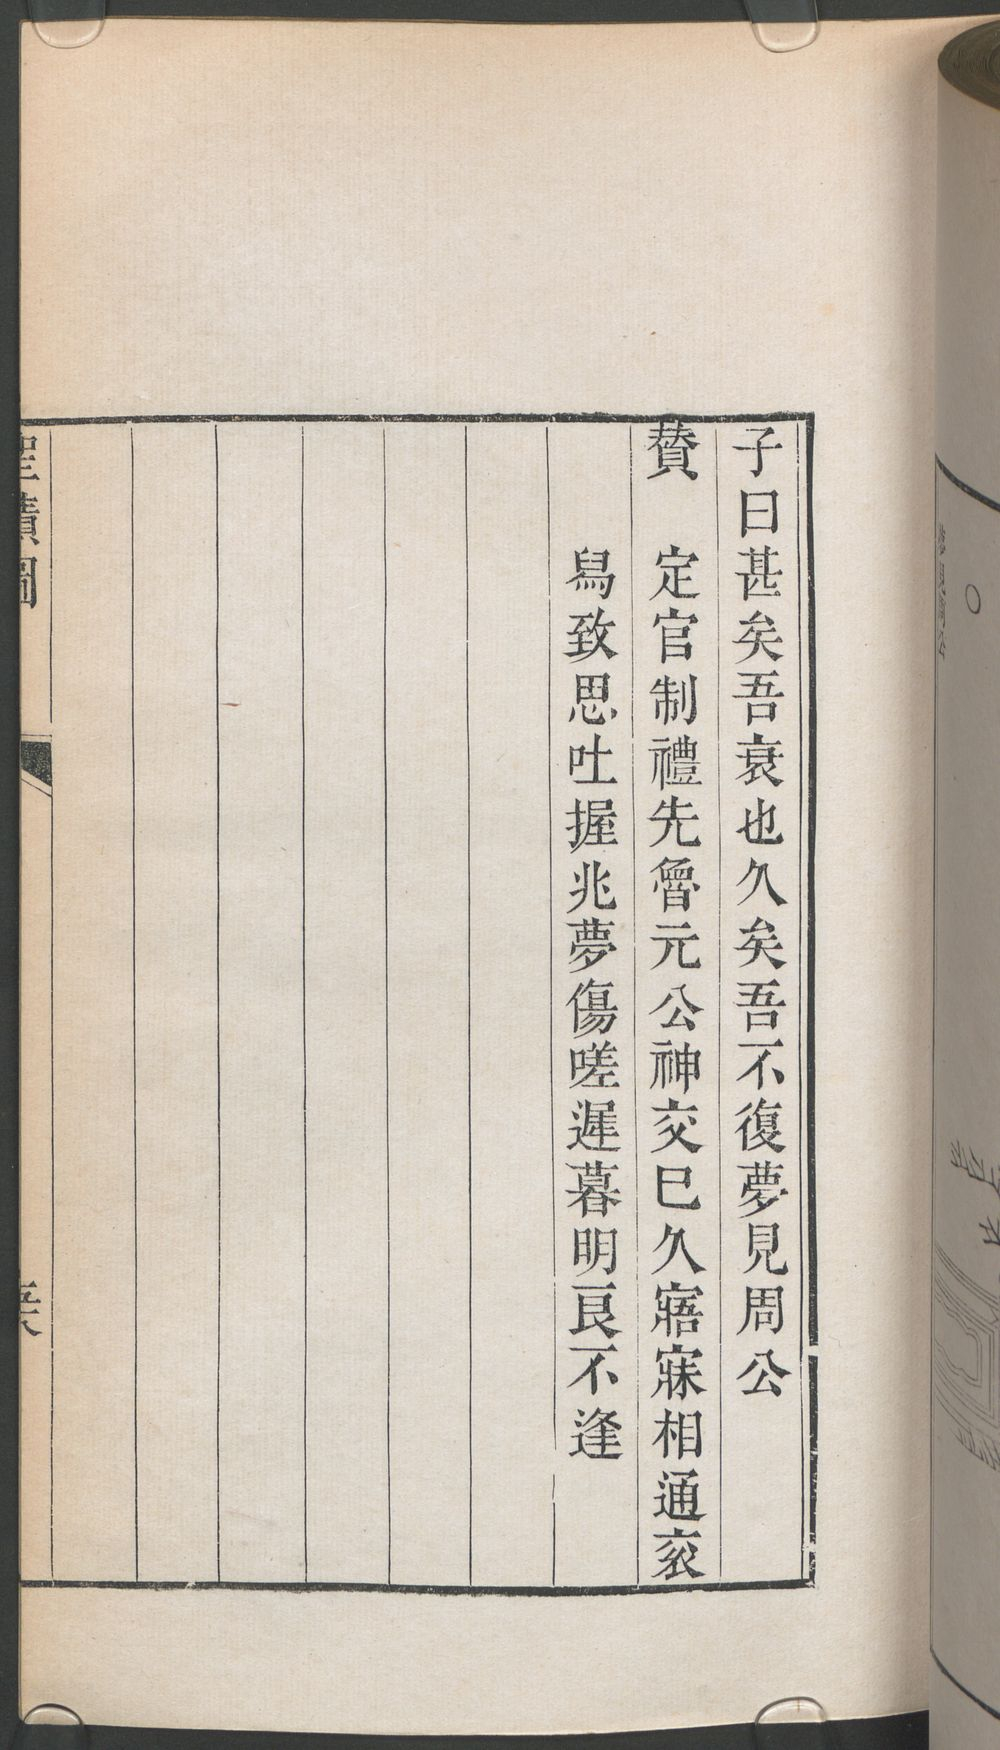 子曰甚矣吾衰也久矣吾不復夢見周公
贊　定官制禮先魯元公神交巳久寤寐相通衮
舄致思吐握兆夢傷嗟遲暮明良不逢
聖蹟圖